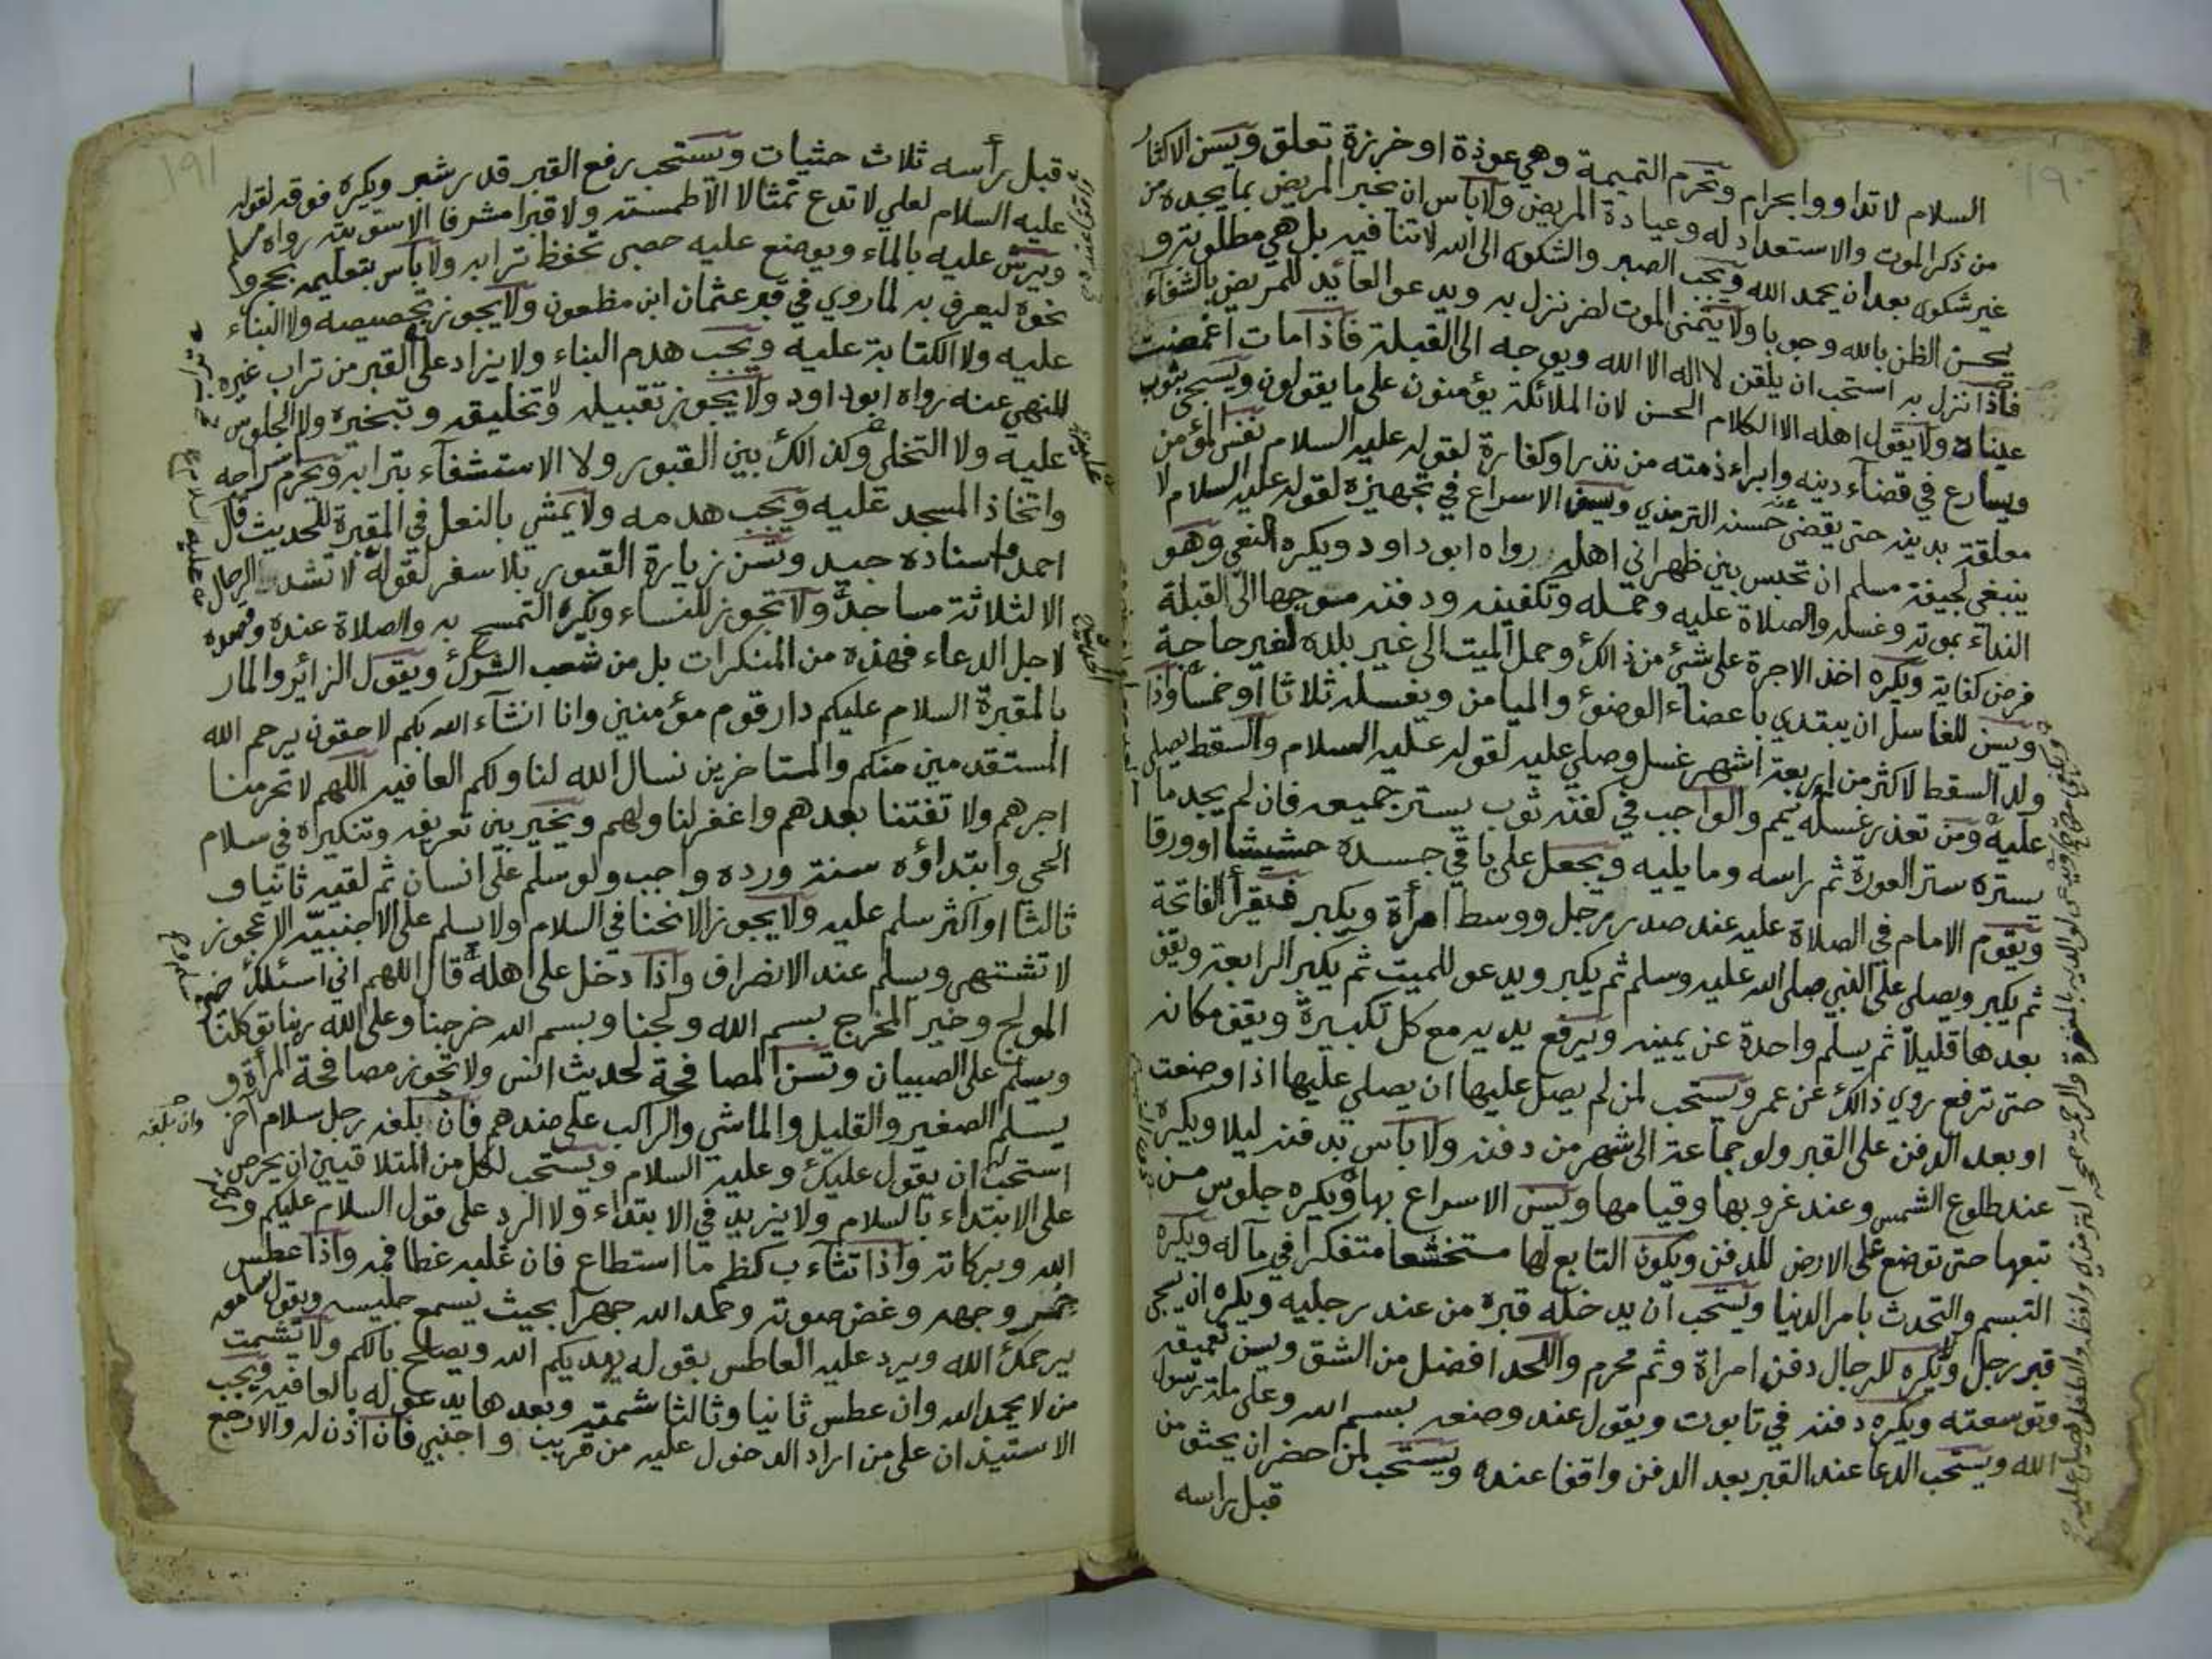 ١٩٠
السلام لا تداووا بحرام وتحرم التميمة وهي عوذة او خرزة تعلق ويسن الاكثار
من ذكر الموت والاستعداد له وعيادة المريض ولا باس ان يخبر المريض بما يجده من
غير شكوى بعد ان يحمد الله ويجب الصبر والشكوى الى الله لا تنافيه بل هي مطلوبة و
يحسن الظن بالله وجوبا ولا يتمنى الموت لضر نزل به ويدعو العائد للمريض بالشفآء
فاذا نزل به استحب ان يلقن لا اله الا الله ويوجه الى القبلة فاذا مات اغمضت
عيناه ولا يقول اهله الا الكلام الحسن لان الملائكة يؤمنون على ما يقولون ويسجى بثوب
ويسارع في قضآء دينه وابراء ذمته من نذر او كفارة لقوله عليه السلام نفس المؤمن
معلقة بدينه حتى يقضى عنه حسنه الترمذي ويسن الاسراع في تجهيزه لقوله عليه السلام لا
ينبغي لجيفة مسلم ان تحبس بين ظهراني اهله رواه ابو داود ويكره النعي وهو
النداء بموته وغسله والصلاة عليه وحمله وتكفينه ودفنه متوجها الى القبلة
فرض كفاية ويكره اخذ الاجرة على شئ من ذالك وحمل الميت الى غير بلده لغير حاجة
ويسن للغاسل ان يبتدي باعضاء الوضوء والميامن ويغسله ثلاثا او خمسا واذا
ولد السقط لاكثر من اربعة اشهر غسل وصلي عليه لقوله عليه السلام والسقط يصلى
عليه ومن تعذر غسله يمم والواجب في كفنه ثوب يستر جميعه فان لم يجد ما
يستره ستر العورة ثم راسه وما يليه ويجعل على باقي جسده حشيشا او ورقا
ويقوم الامام في الصلاة عليه عند صدر رجل ووسط امرأة ويكبر فيقرأ الفاتحة
ثم يكبر ويصلي على النبي صلى الله عليه وسلم ثم يكبر ويدعو للميت ثم يكبر الرابعة ويقف
بعدها قليلا ثم يسلم واحدة عن يمينه ويرفع يديه مع كل تكبيرة ويقف مكانه
حتى ترفع روي ذالك عن عمر ويستحب لمن لم يصل عليها ان يصلي عليها اذا وضعت
او بعد الدفن على القبر ولو جماعة الى شهر من دفنه ولا باس بدفنه ليلا ويكره
عند طلوع الشمس وعند غروبها وقيامها ويسن الاسراع بها ويكره جلوس من
تبعها حتى توضع على الارض للدفن ويكون التابع لها متخشعا متفكرا في مآله ويكره
التبسم والتحدث بامر الدنيا ويستحب ان يدخله قبره من عند رجليه ويكره ان يسجى
قبر رجل ولا يكره للرجال دفن امراة وثم محرم واللحد افضل من الشق ويسن تعميقه
وتوسعته ويكره دفنه في تابوت ويقول عند وضعه بسم الله وعلى ملة رسول
الله ويستحب الدعا عند القبر بعد الدفن واقفا عنده ويستحب لمن حضر ان يحثو من
قبل راسه
١٩١
قبل رأسه ثلاث حثيات ويستحب رفع القبر قدر شبر ويكره فوقه لقوله
عليه السلام لعلي لا تدع تمثالا الا طمسته ولا قبرا مشرفا الا سويته رواه مسلم
ويرش عليه بالماء ويوضع عليه حصى تحفظ ترابه ولا بأس بتعليمه بحجر و
نحوه ليعرف به لما روي في قبر عثمان ابن مظعون ولا يجوز تجصيصه ولا البناء
عليه ولا الكتابة عليه ويجب هدم البناء ولا يزاد على القبر من تراب غيره
للنهي عنه رواه ابو داود ولا يجوز تقبيله ولا تخليقه وتبخيره ولا الجلوس
عليه ولا التخلي وكذالك بين القبور ولا الاستشفآء بترابه ويحرم اسراجه
واتخاذ المسجد عليه ويجب هدمه ولا يمشي بالنعل في المقبرة للحديث قال
احمد اسناده جيد وتسن زيارة القبور بلا سفر لقوله لا تشد الرحال
الا لثلاثة مساجد ولا تجوز للنساء ويكره التمسح به والصلاة عنده وقصده
لاجل الدعاء فهذه من المنكرات بل من شعب الشرك ويقول الزائر والمار
بالمقبرة السلام عليكم دار قوم مؤمنين وانا انشآء الله بكم لاحقون يرحم الله
المستقدمين منكم والمستاخرين نسال الله لنا ولكم العافيه اللهم لا تحرمنا
اجرهم ولا تفتنا بعدهم واغفر لنا ولهم ويخير بين تعريفه وتنكيره في سلام
الحي وابتداؤه سنة ورده واجب ولو سلم على انسان ثم لقيه ثانيا و
ثالثا او اكثر سلم عليه ولا يجوز الانحنا في السلام ولا يسلم على الاجنبيه الا عجوز
لا تشتهى ويسلم عند الانصراف واذا دخل على اهله قال اللهم اني اسئلك خير
المولج وخير المخرج بسم الله ولجنا وبسم الله خرجنا وعلى الله ربنا توكلنا
ويسلم على الصبيان وتسن المصافحة لحديث انس ولا تجوز مصافحة المرأة و
يسلم الصغير والقليل والماشي والراكب على ضدهم فان بلغه رجل سلام آخر
استحب ان يقول عليك وعليه السلام ويستحب لكل من المتلاقيين ان يحرص
على الابتداء بالسلام ولا يزيد في الابتداء ولا الرد على قول السلام عليكم ورحمة
الله وبركاته واذا تثآءب كظم ما استطاع فان غلبه غطا فمه واذا عطس
خمر وجهه وغض صوته وحمد الله جهرا بحيث يسمع جليسه ويقول سامعه
يرحمك الله ويرد عليه العاطس بقوله يهديكم الله ويصلح بالكم ولا يشمت
من لا يحمد الله وان عطس ثانيا وثالثا شمته وبعدها يدعو له بالعافيه ويجب
الاستيذان على من اراد الدخول عليه من قريب واجنبي فان اذن له والا رجع